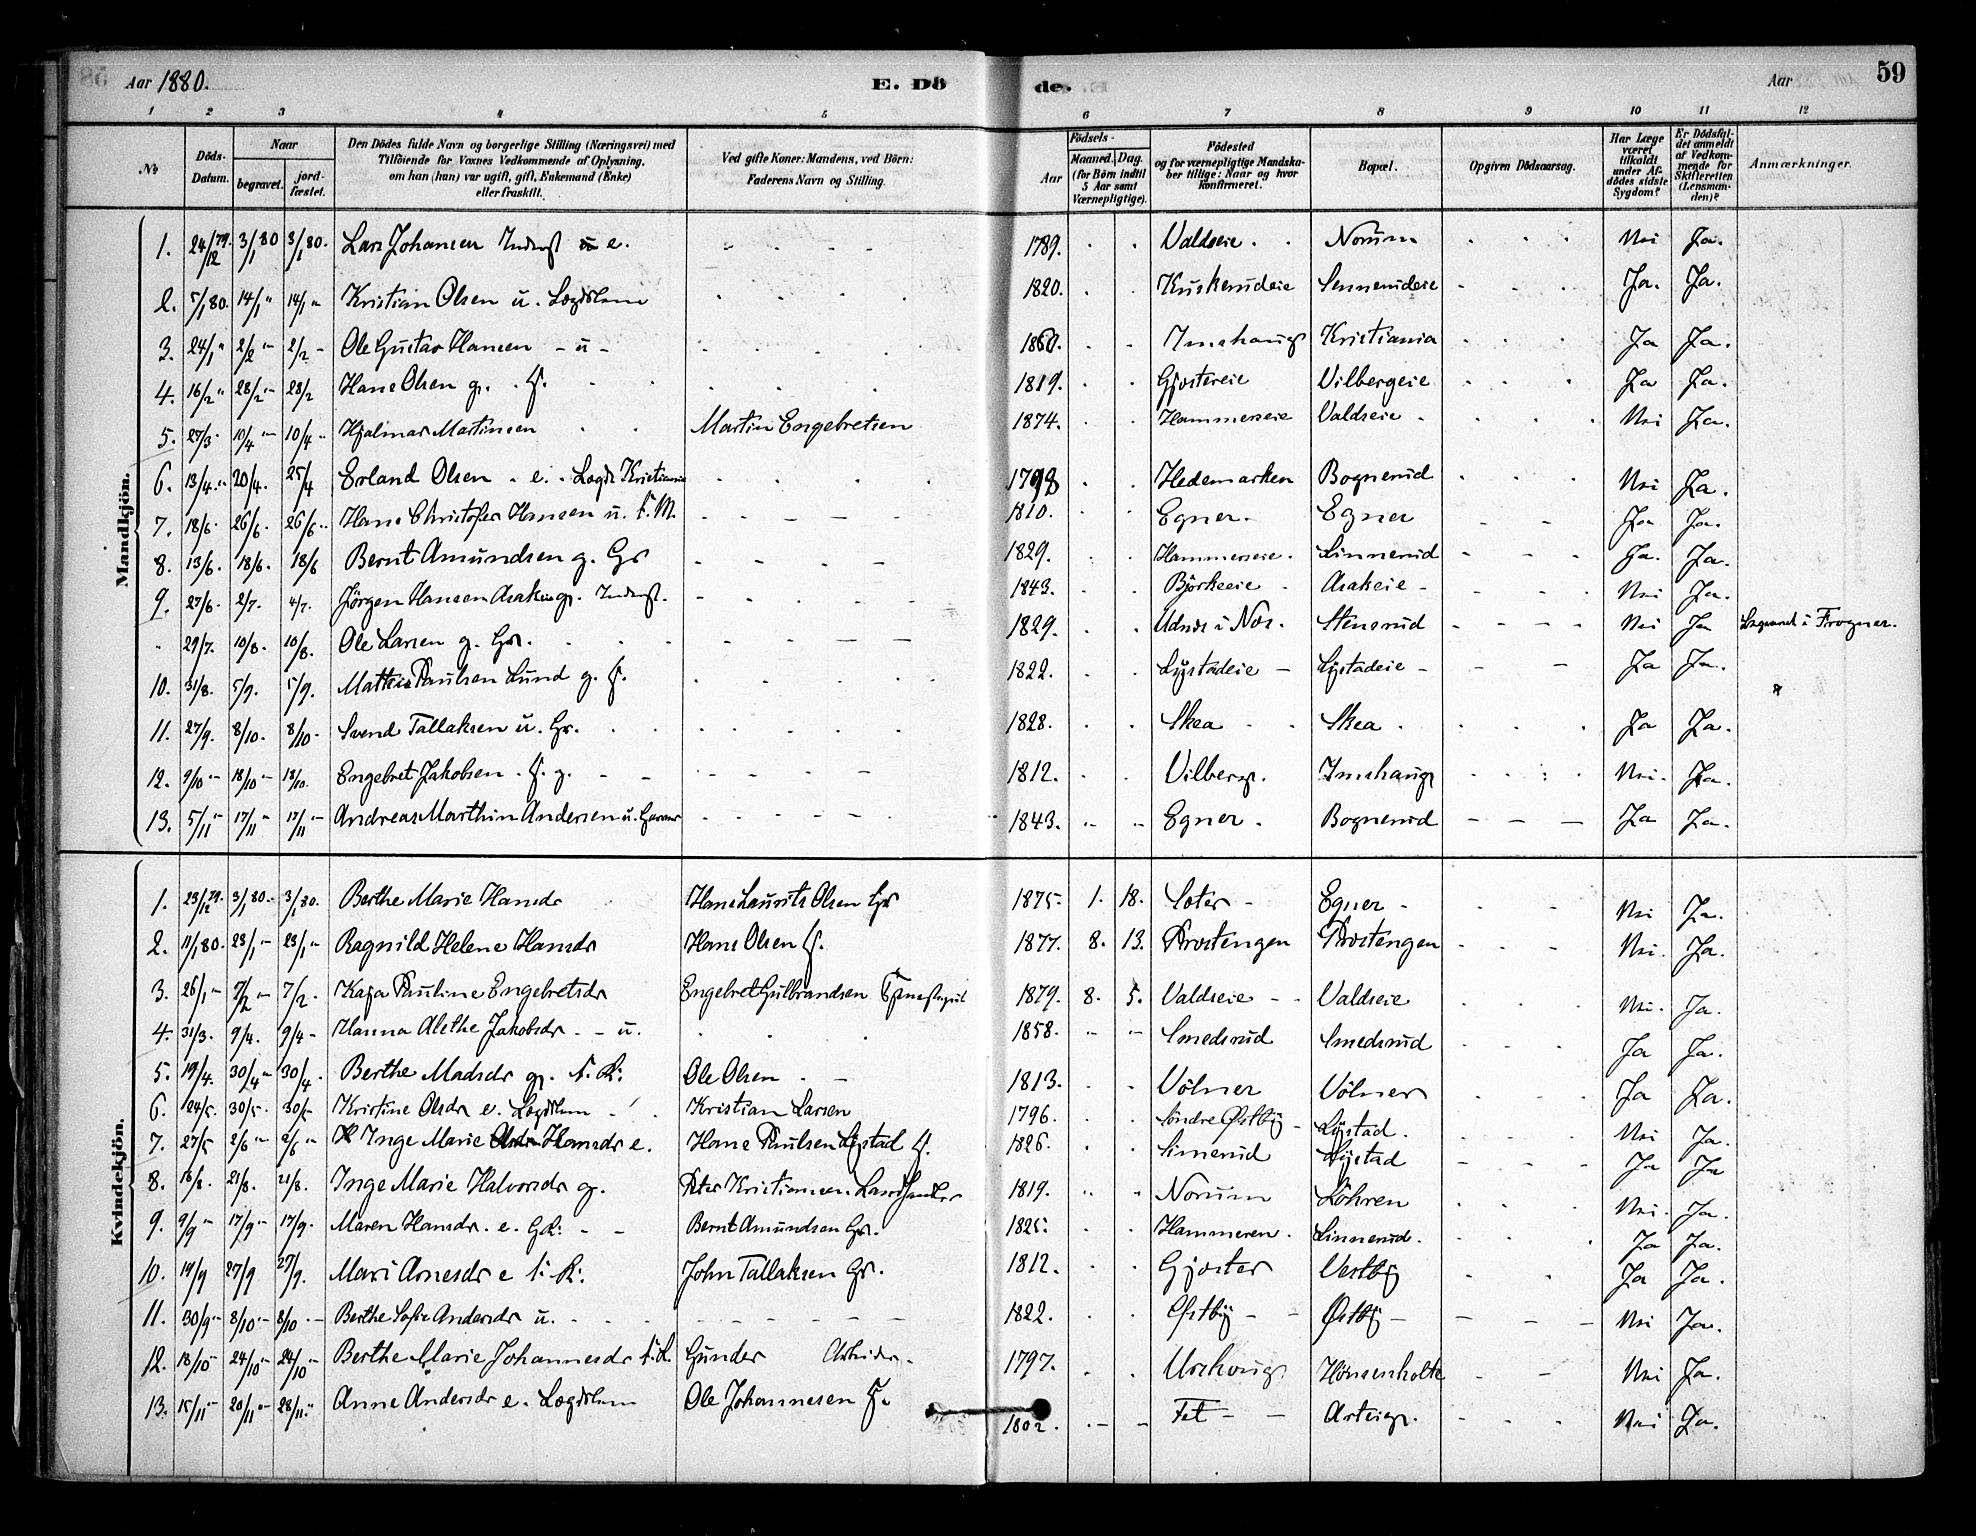 Aar 1880. E. Dö de. Aar 59
1 2 3 4 5 6 7 8 9 10 11 12
No Döds-Datum. Naar begravet. jord-fæstet. Den Dödes fulde Navn og borgerlige Stilling (Næringsvei) med Tilföiende for Voxnes Vedkommende af Oplysning, om han (hun) var ugift, gift, Enkemand (Enke) eller fraskilt. Ved gifte Koner: Mandens, ved Börn: Faderens Navn og Stilling. Födsels- Aar Maaned. Dag. (for Börn indtil 5 Aar samt Værnepligtige). Födested og for værnepligtige Mandska-ber tillige: Naar og hvor konfirmeret. Bopæl. Opgiven Dödsaarsag. Har Læge været tilkaldt under Af-dödes sidste Sygdom? Er Dödsfal-det anmeldt af Vedkom-mende for Skifteretten (Lensman-den)? Anmærkninger.
Mandkjön.
1. 24/12 79. 3/1 80 3/1 80. Lars Johansen Inderst e. 1789. Valdseie Norum Nei Ja.
2. 5/1 80. 14/1 " 14/1 " Kristian Olsen u. Lægdslem 1820. Kuskerudeie Sennerudeie Ja. Ja.
3. 24/1 " 2/2 - 2/2 - Ole Gustav Hansen - u - 1860. Imshaug Kristiania Ja Ja.
4. 16/2 " 28/2 - 28/2 Hans Olsen g. F. 1819. Gjøstereie Vilbergeie Ja Ja.
5. 27/3 - 10/4 - 10/4 - Hjalmar Martinsen Martin Engebretsen 1874. Hammerseie Valdseie Nei Ja.
6. 13/4 - 20/4. 25/4 Erland Olsen e. Lægdsl Kristiania 1798 Hedemarken Bognerud Nei Ja.
7. 18/6 - 26/6. 26/6 - Hans Christofer Hansen u. F.M. 1810. Egner Egner Ja Ja.
8. 13/6. 18/6. 18/6 Bernt Amundsen g. Gr 1829. Hammerseie Linnerud Ja. Ja.
9. 27/6. 2/7. 4/7. Jörgen Hansen Asak g. Inderst. 1843. Bjørkeeie Asakeie Nei Ja.
" 29/7. 10/8. 10/8. Ole Larsen g. Gr. 1829. Udnes i Nes. Stensrud Nei Ja Begravet i Frogner.
10. 31/8. 5/9. 5/9. Mathis Paulsen Lund g. F. 1822. Lystadeie Lystadeie Ja Ja.
11. 27/9. 8/10. 8/10. Svend Tallaksen u. Gr. 1828. Skea Skea Ja Ja.
12. 9/10 - 18/10 - 18/10. Engebret Jakobsen F. g. 1812. Vilberg. Imshaug Nei. Ja.
13. 5/11 - 17/11 - 17/11 - Andreas Marthin Andersen u. 1843. Egner Bognerud Ja Ja.
Kvindekjön.
1. 23/12 79. 3/1 80. 3/1 80. Berthe Marie Hansdr Hans Laurits Olsen Gr 1875. 1. 18. Soter Egner Nei Ja.
2. 11/1 80. 23/1 - 23/1 - Ragnild Helene Hansdr Hans Olsen F. 1877. 8. 13. Prostengen Prostengen Nei. Ja.
3. 26/1 - 7/2 - 7/2. Kaja Pauline Engebretsdr Engebret Gulbrandsen 1879. 8. 5. Valdseie Valdseie Nei. Ja.
4. 31/3. 9/4. 9/4 - Hanna Alethe Jakobsdr - u. 1858. Smedsrud Smedsrud Ja Ja.
5. 19/4. 30/4 - 30/4. Berthe Madsdr g. F. K. Ole Olsen 1813. Völner Völner Ja Ja.
6. 24/5. 30/5. 30/5 Kristine Olsdr e. Lægdslem Kristian Larsen 1796. Søndre Østby Lystad. Nei Ja.
7. 27/5 2/6 - 2/6 - Inge Marie Hansdr e. Hans Paulsen Lystad F. 1826. Simerud Lystad Ja Ja
8. 16/8. 21/8. 21/8. Inge Marie Halvorsdr g. Peter Kristiansen Landhandler 1819. Norum Löhren Nei. Ja.
9. 9/9 - 17/9 - 17/9. Maren Hansdr. e. GK. Bernt Amundsen Gr. 1825. Hammeren Linnerud. Ja Ja.
10. 19/9 27/9 27/9. Mari Arnesdr e F. K. John Tallaksen Gr. 1812. Gjøster Vestby Ja Ja.
11. 30/9 - 8/10 - 8/10 - Berthe Sofie Andersdr u. 1822. Østby Østby Nei Ja.
12. 18/10 - 24/10 - 24/10 - Berthe Marie Johannesdr F.K. Gunder Arbeider 1797. Urskoug Hönsenholte Nei Ja.
13. 15/11 - 20/11 - 28/11. Anne Andersdr e. Lægdslem Ole Johannesen F. 1802. Fet Arteig. Nei Ja.